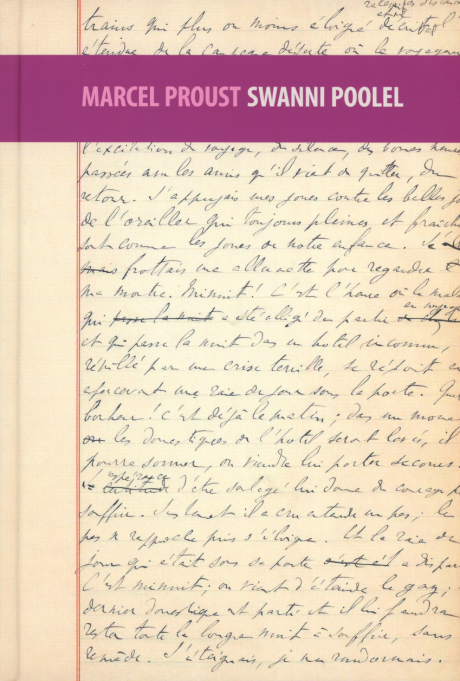 trains qui plus ou moins éloigné
étendue de la campagne déserte où le voyageur
MARCEL PROUST SWANNI POOLEL
l'excitation du voyage, du silence, des bonnes heures
passées avec les amis qu'il vient de quitter, du
retour. J'appuyais mes joues contre les belles j
de l'oreiller qui toujours pleines et fraîch
sont comme les joues de notre enfance. Je
frottais une allumette pour regarder
ma montre. Minuit! C'est l'heure où le mala
en voyage
qui passe la nuit a été obligé de partir
et qui passe la nuit dans un hotel inconnu,
réveillé par une crise terrible, se réjouit en
apercevant une raie de jour sous la porte. Quel
bonheur! C'est déjà le matin; dans un mome
les domestiques de l'hotel seront levés, il
pourra sonner, on viendra lui porter secours.
espérance
d'être soulagé lui donne du courage p
souffrir. Justement il a cru entendre un pas; le
pas se rapproche puis s'éloigne. Et la raie de
jour qui était sous sa porte a dispar
C'est minuit; on vient d'éteindre le gaz,
dernier domestique est parti et il lui faudra
rester toute la longue nuit à souffrir, sans
remède. J'éteignais, je me rendormais.